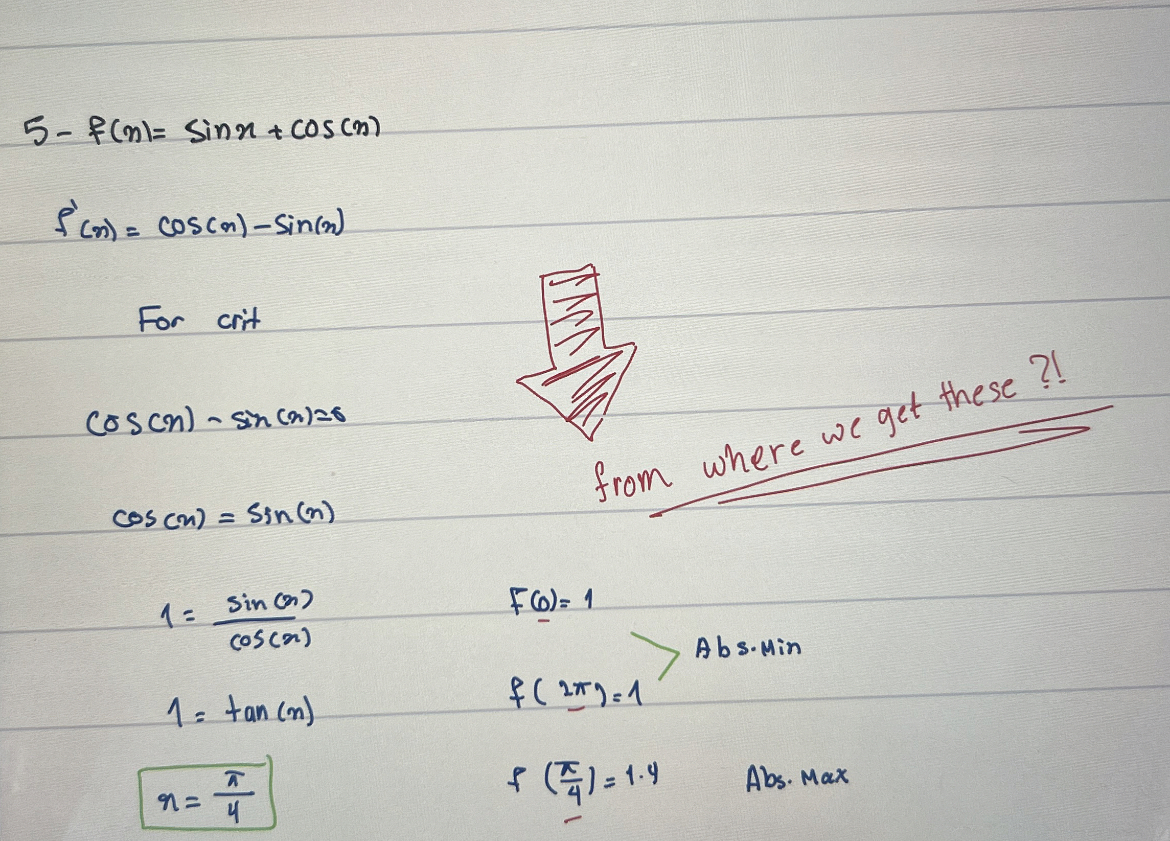 5- f(x)= sinx + cos(x)
f'(x) = cos(x) - sin(x)
For crit
cos(x) - sin(x)=0
from where we get these ?!
cos(x) = sin(x)
1 = sin(x)/cos(x)
F(0)= 1
Abs.Min
f( 2π)=1
1 = tan(x)
x = π/4
f (π/4) = 1.4
Abs. Max